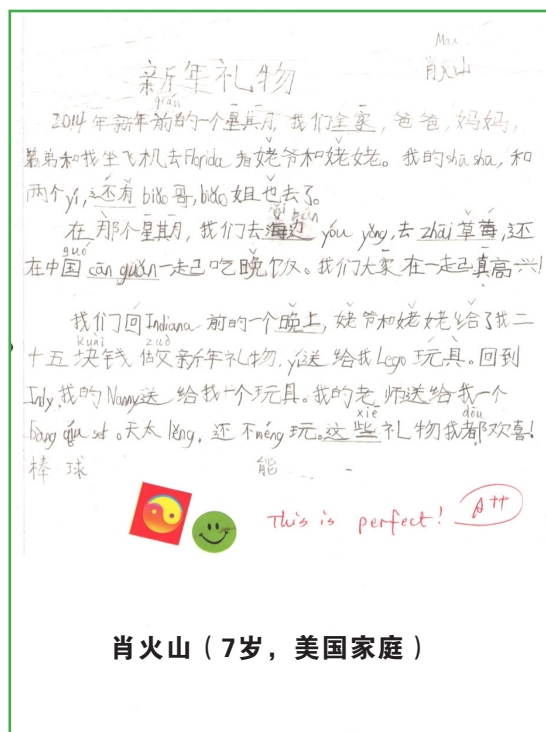 Max
新年礼物 肖火山
qián
2014年新年前的一个星其月，我们全家，爸爸，妈妈，
弟弟和我坐飞机去Florida 看姥爷和姥姥。我的shū shu，和
两个yí，还有biǎo哥，biǎo姐也去了。
在那个星其月，我们去海边 yóu yǒng，去 zhāi 草莓，还
guó
在中国 cān guǎn 一走己吃晚饭。我们大家在一走己真高兴！
我们回Indiana 前的一个晚上，姥爷和姥姥给了我二
kuài zuò
十五块钱做新年礼物，yí送给我Lego 玩具。回到
Indy，我的Nanny送给我一个玩具。我的老师送给我一个
xiē dōu
bàng qiú set。天太lěng，还不néng玩。这些礼物我都欢喜！
棒球 能
This is perfect! A++
肖火山（7岁，美国家庭）